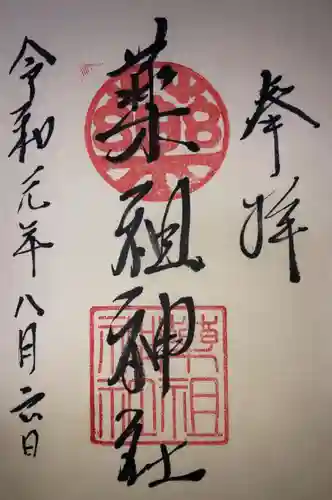 奉拝
薬祖神社
令和元年八月六日
薬祖神社